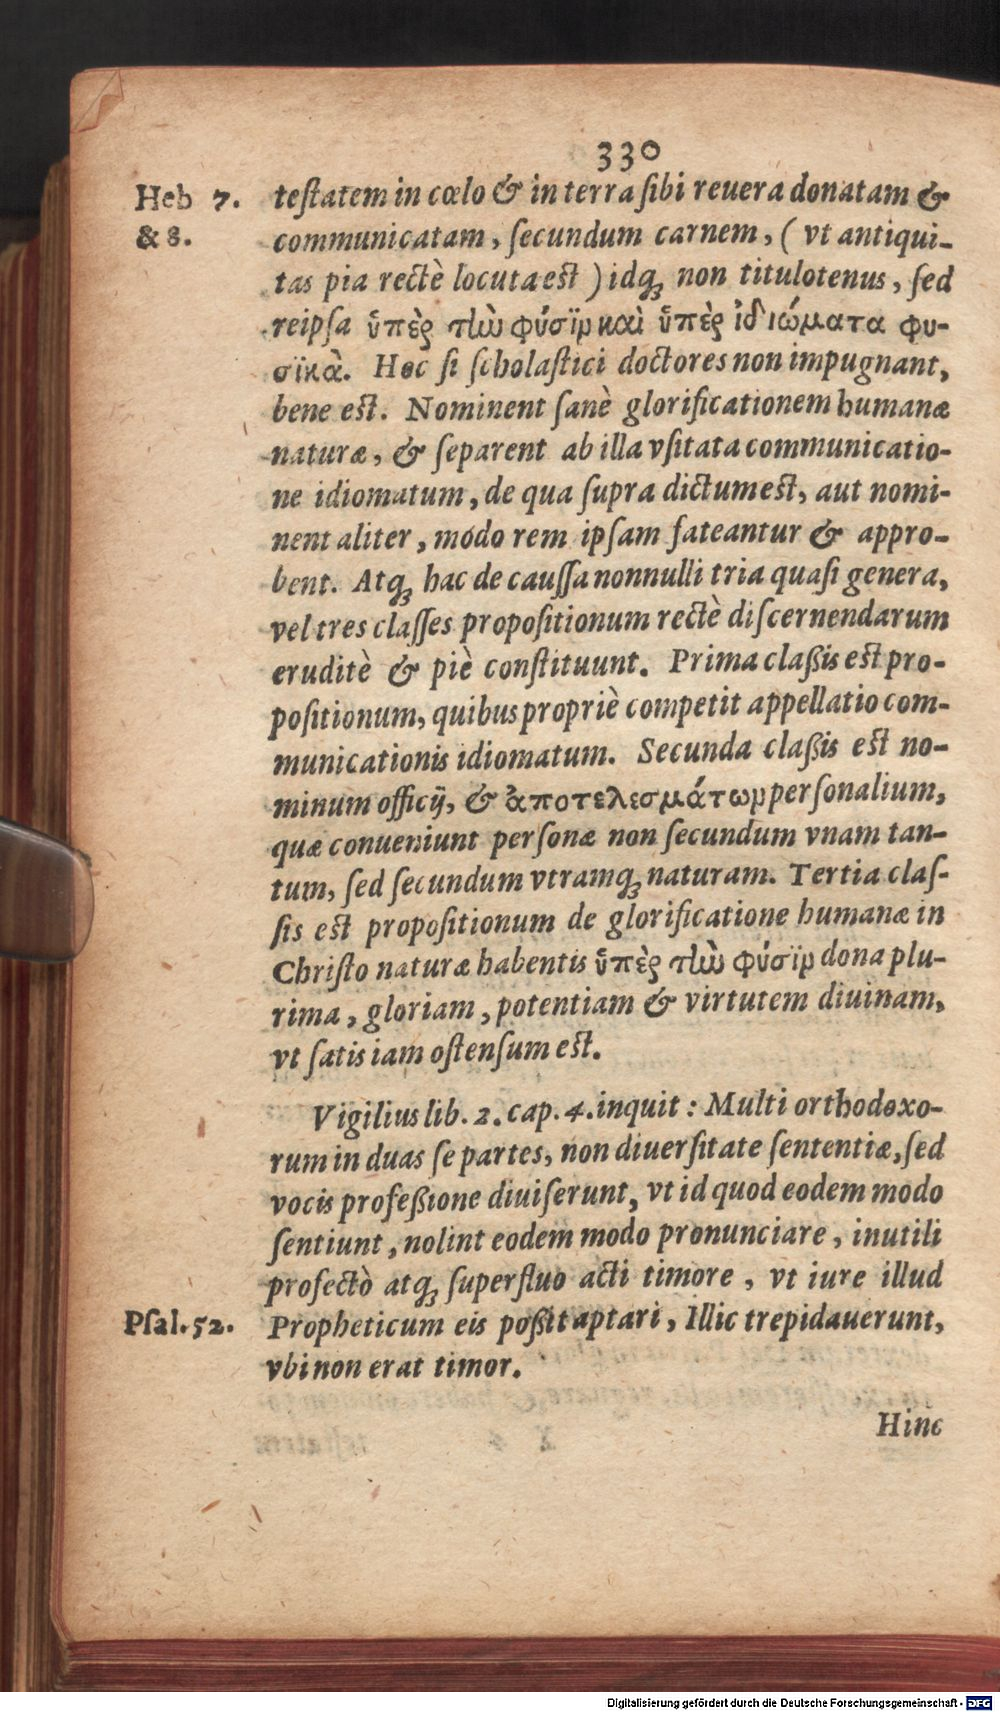 330
Heb 7.
& 8.
teſtatem in cœlo & in terra ſibi reuera donatam &
communicatam, ſecundum carnem, ( vt antiqui-
tas pia rectè locuta eſt ) idq́ꝫ non titulotenus, ſed
reipſa ὕπὲρ τἰὼ φύσϊν καὶ ὕπὲρ ἰδιώματα φυ-
σϊκὰ. Hoc ſi ſcholaſtici doctores non impugnant,
bene eſt. Nominent ſanè glorificationem humanæ
naturæ, & ſeparent ab illa vſitata communicatio-
ne idiomatum, de qua ſupra dictum eſt, aut nomi-
nent aliter, modo rem ipſam fateantur & appro-
bent. Atqꝫ hac de cauſſa nonnulli tria quaſi genera,
vel tres claſſes propoſitionum rectè diſcernendarum
eruditè & piè conſtituunt. Prima claßis eſt pro-
poſitionum, quibus propriè competit appellatio com-
municationis idiomatum. Secunda claßis eſt no-
minum officij, & ἀποτελεσμάτων perſonalium,
quæ conueniunt perſonæ non ſecundum vnam tan-
tum, ſed ſecundum vtramqꝫ naturam. Tertia claſ-
ſis eſt propoſitionum de glorificatione humanæ in
Chriſto naturæ habentis ὕπὲρ τἰὼ φύσϊν dona plu-
rima, gloriam, potentiam & virtutem diuinam,
vt ſatis iam oſtenſum eſt.
Vigilius lib. 2. cap. 4. inquit : Multi orthodoxo-
rum in duas ſe partes, non diuerſitate ſententiæ, ſed
vocis profeßione diuiſerunt, vt id quod eodem modo
ſentiunt, nolint eodem modo pronunciare, inutili
profectò atqꝫ ſuperfluo acti timore, vt iure illud
Pſal. 52.
Propheticum eis poßit aptari, Illic trepidauerunt,
vbi non erat timor.
Hinc
Digitalisierung gefördert durch die Deutsche Forschungsgemeinschaft - DFG